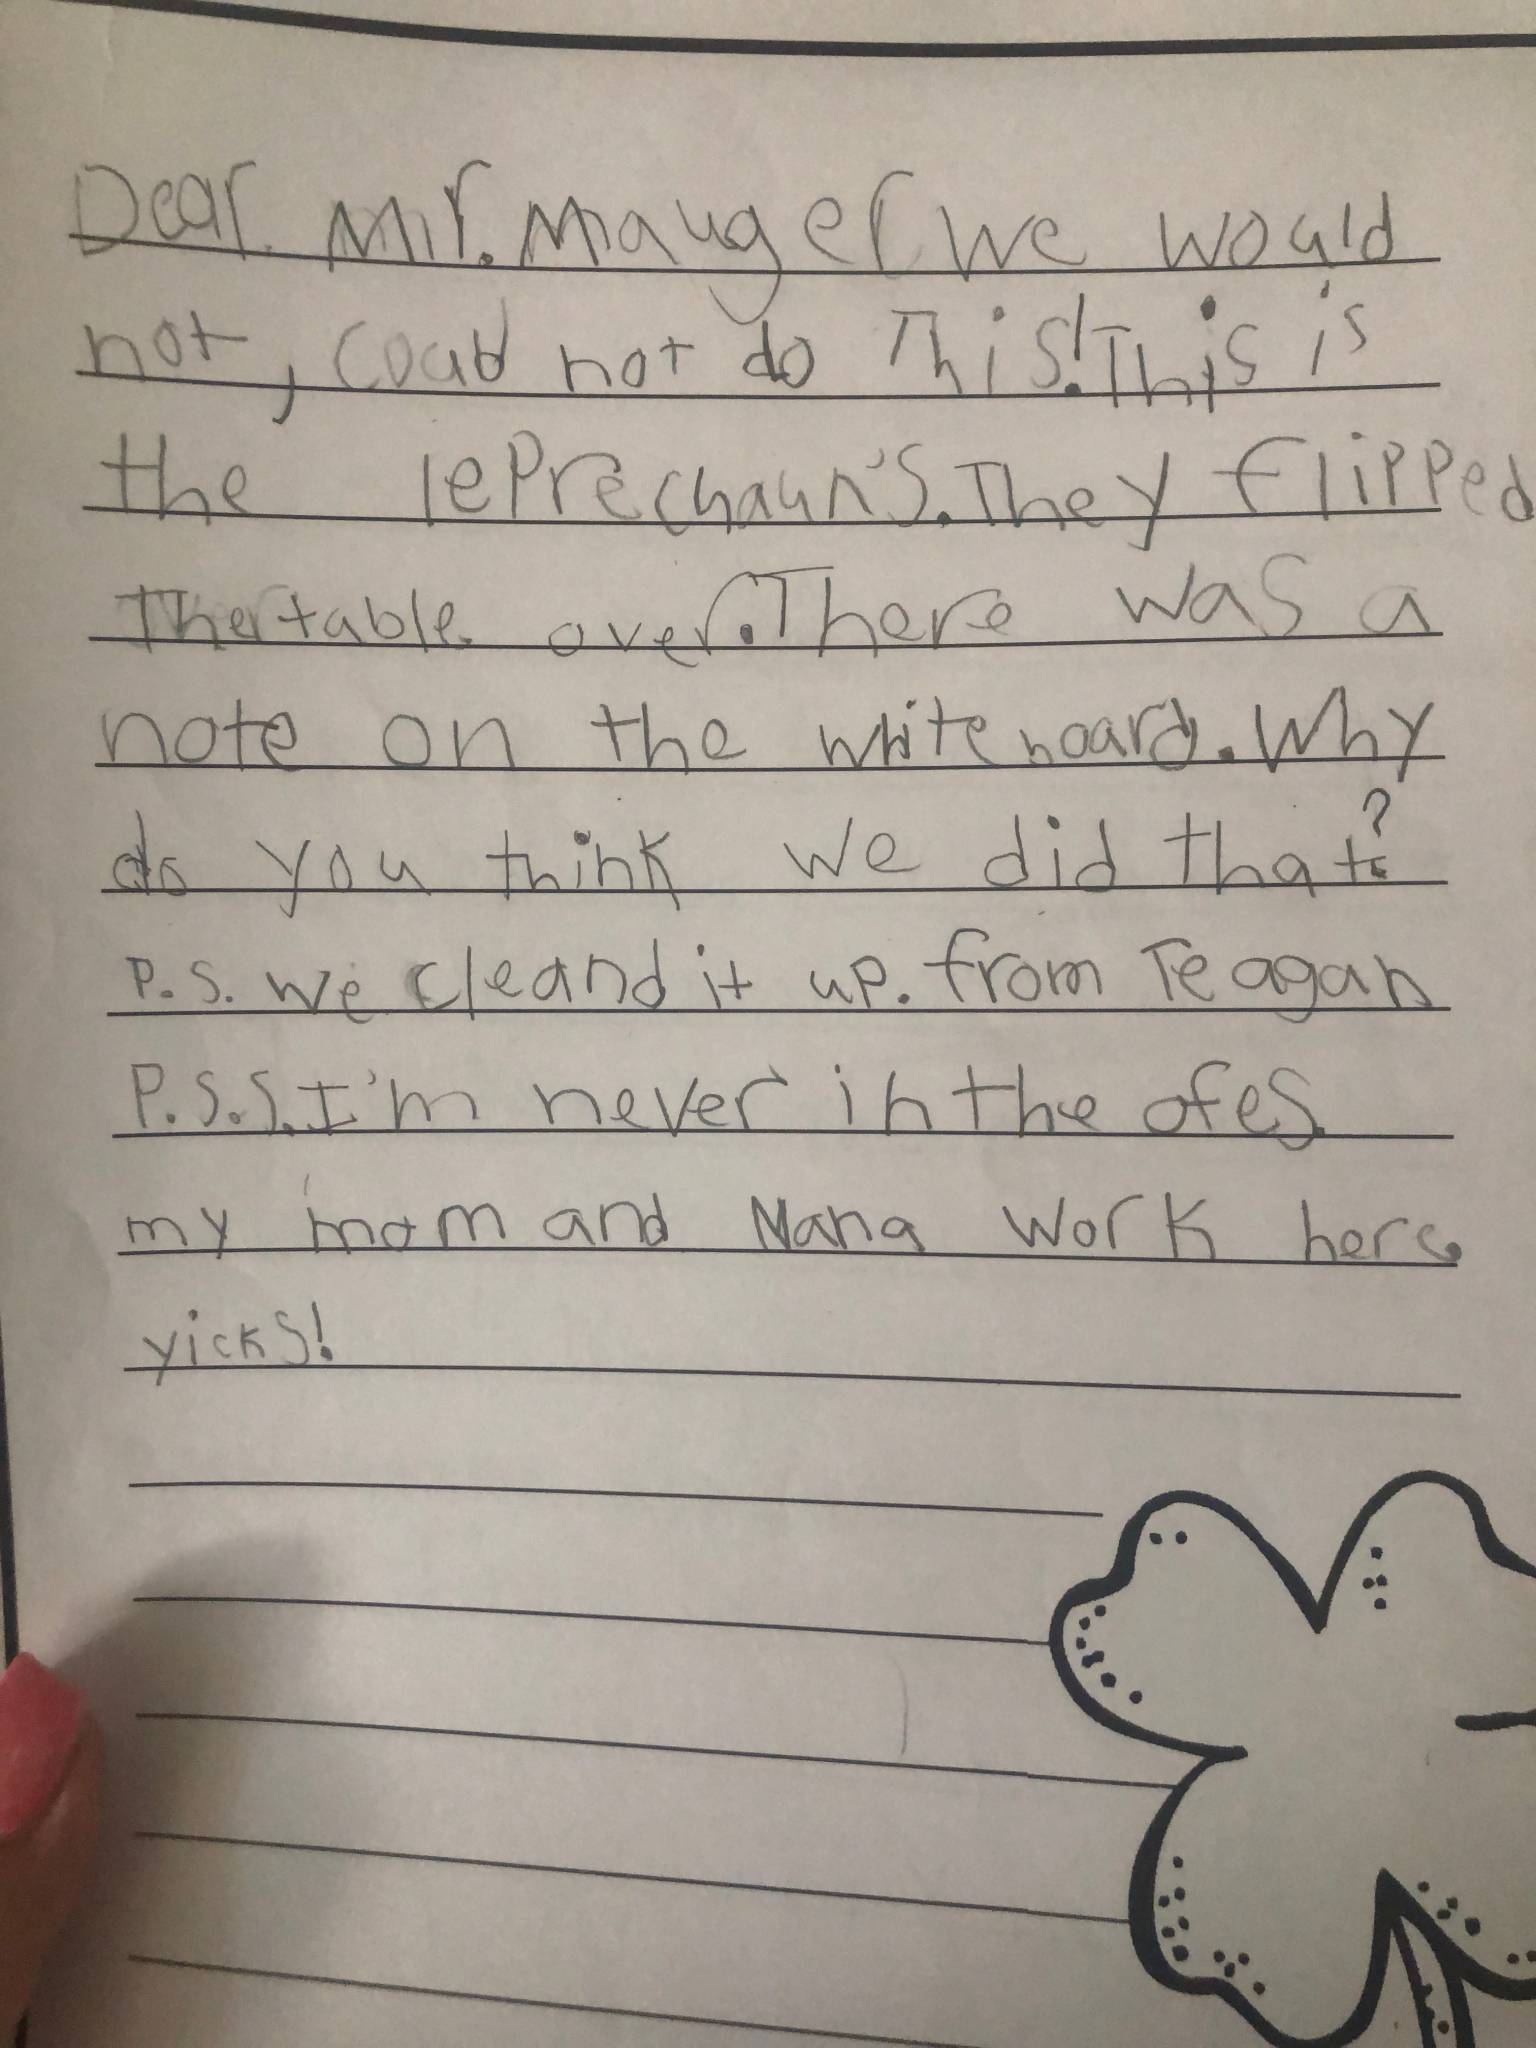 Dear Mr. Mauger we would
not, coud not do This! This is
the leprechaun's. They flipped
The table over. There was a
note on the whiteboard. Why
do you think we did that?
P.S. we cleand it up. from Teagan
P.S.S. I'm never in the ofes.
my mom and Nana work here.
yicks!